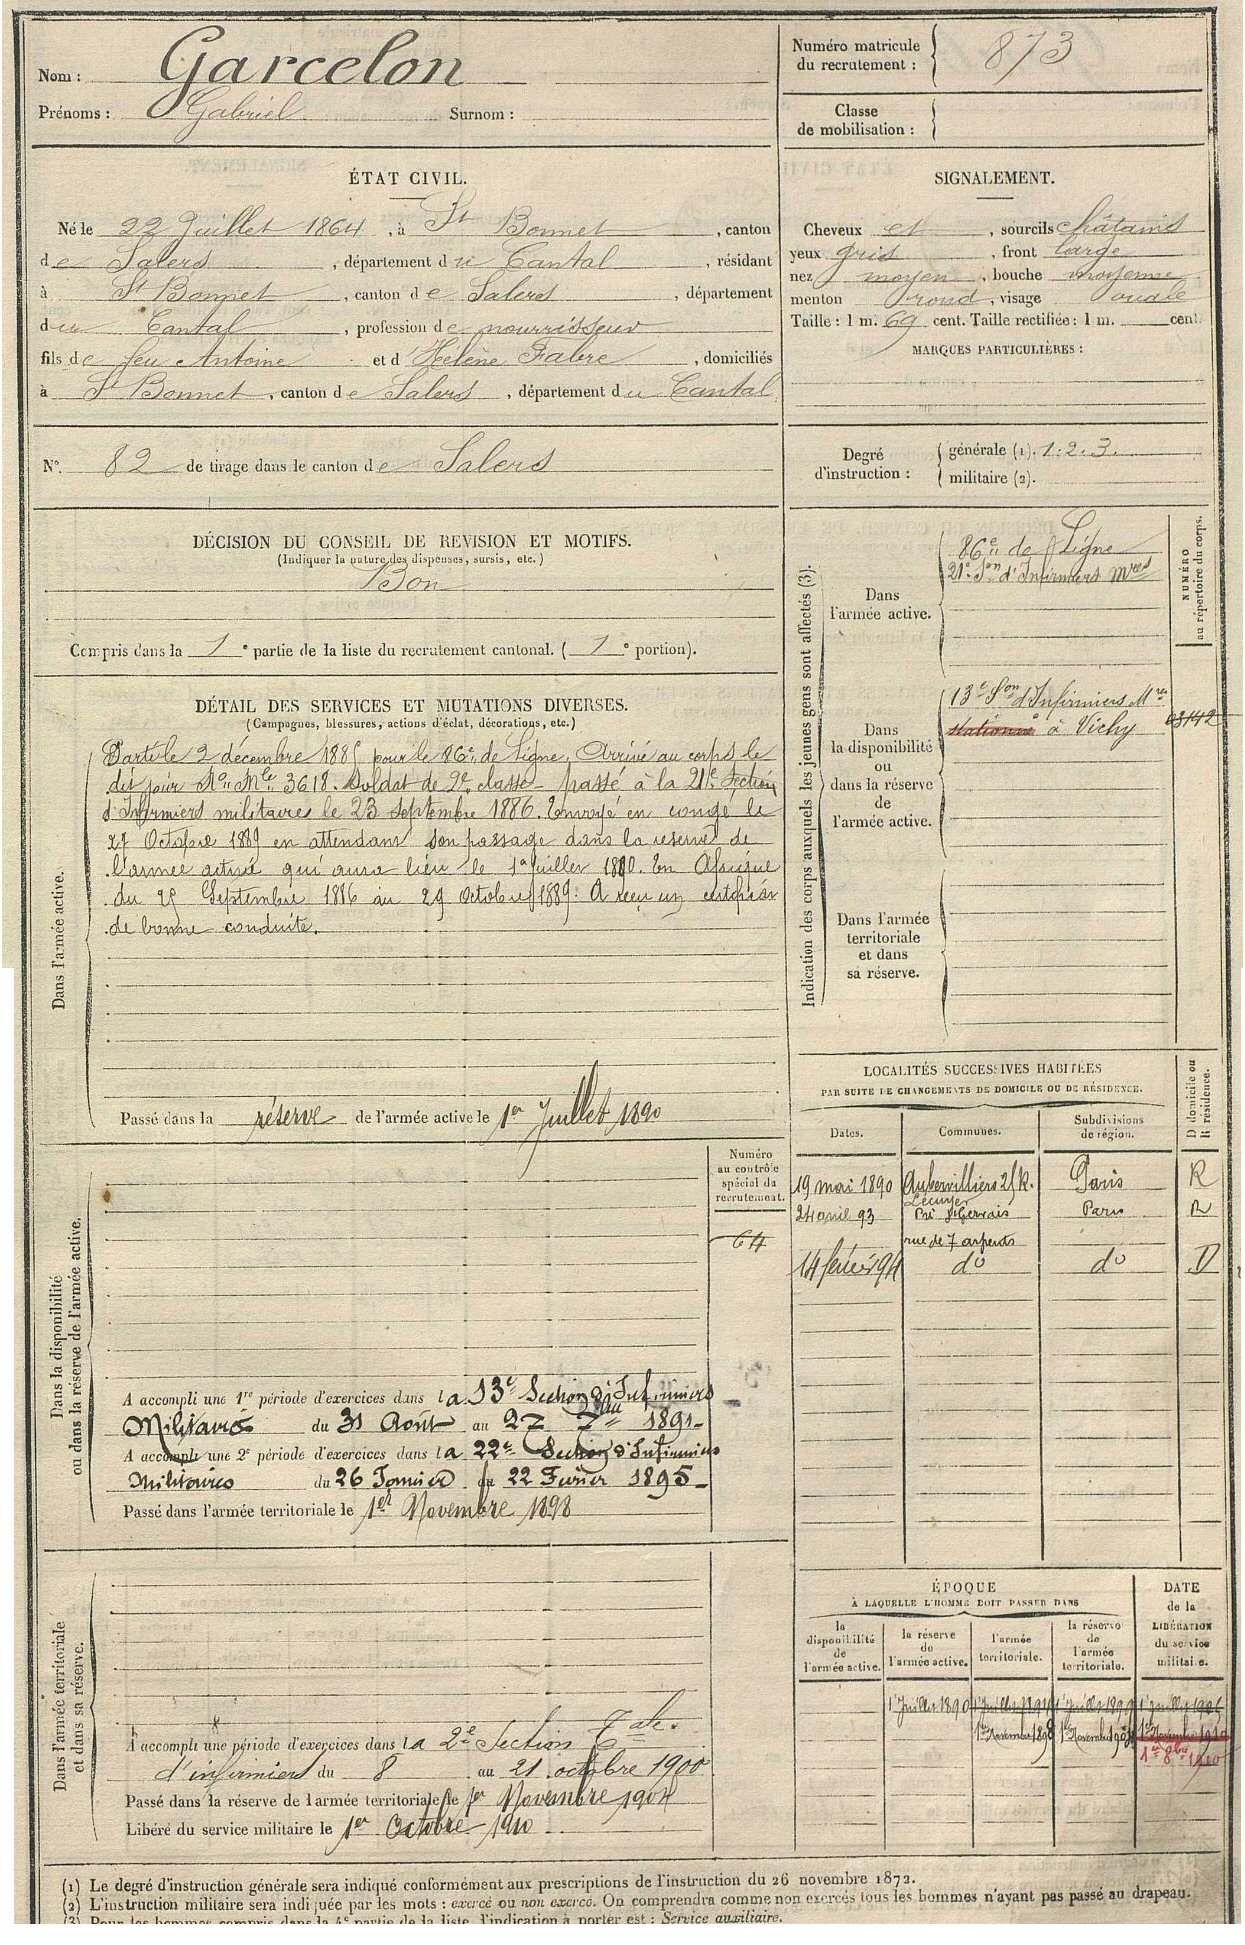 Nom : Garcelon
Prénoms : Gabriel Surnom :
Numéro matricule
du recrutement : 873
Classe
de mobilisation :
ÉTAT CIVIL.
Né le 22 Juillet 1864, à St Bonnet, canton
de Salers, département du Cantal, résidant
à St Bonnet, canton de Salers, département
du Cantal, profession de nourrisseur
fils de feu Antoine et d'Hélène Fabre, domiciliés
à St Bonnet, canton de Salers, département du Cantal
SIGNALEMENT.
Cheveux et, sourcils châtains
yeux gris, front large
nez moyen, bouche moyenne
menton rond, visage ovale
Taille : 1 m. 69 cent. Taille rectifiée : 1 m. cent.
MARQUES PARTICULIÈRES :
N°. 82 de tirage dans le canton de Salers
Degré
d'instruction :
générale (1). 1.2.3.
militaire (2).
DÉCISION DU CONSEIL DE REVISION ET MOTIFS.
(Indiquer la nature des dispenses, sursis, etc.)
Bon
Compris dans la 1e partie de la liste du recrutement cantonal. ( 1e portion).
DÉTAIL DES SERVICES ET MUTATIONS DIVERSES.
(Campagnes, blessures, actions d'éclat, décorations, etc.)
Dans l'armée active.
Parti le 2 décembre 1885 pour le 86e de Ligne. Arrivé au corps le
dit jour No Mle 3618. Soldat de 2e classe - passé à la 21e Section
d'Infirmiers militaires le 23 septembre 1886. Envoyé en congé le
27 Octobre 1889 en attendant son passage dans la réserve de
l'armée active qui aura lieu le 1er juillet 1890. En Afrique
du 25 Septembre 1886 au 29 Octobre 1889. A reçu un certificat
de bonne conduite.
Passé dans la réserve de l'armée active le 1er Juillet 1890
Indication des corps auxquels les jeunes gens sont affectés (3).
NUMÉRO
au répertoire du corps.
Dans
l'armée active.
86e de Ligne
21e Son d'Infirmiers Mres
Dans
la disponibilité
ou
dans la réserve
de
l'armée active.
13e Son d'Infirmiers Mres
à Vichy
Dans l'armée
territoriale
et dans
sa réserve.
LOCALITÉS SUCCESSIVES HABITÉES
PAR SUITE DE CHANGEMENTS DE DOMICILE OU DE RÉSIDENCE.
Dates. Communes. Subdivisions
de région. D domicile ou
R résidence.
19 mai 1890 Aubervilliers 25 R. Paris R
Lécuyer
24 avril 93 Pré St Gervais Paris R
rue de 7 arpents
14 février 94 do do D
Dans la disponibilité
ou dans la réserve de l'armée active.
Numéro
au contrôle
spécial du
recrutement.
64
A accompli une 1re période d'exercices dans la 13e Section d'Infirmiers
Militaires du 31 Août au 27 7bre 1891
A accompli une 2e période d'exercices dans la 22e Section d'Infirmiers
Militaires du 26 Janvier au 22 Février 1895
Passé dans l'armée territoriale le 1er Novembre 1898
Dans l'armée territoriale
et dans sa réserve.
A accompli une période d'exercices dans la 2e Section Tale.
d'infirmiers du 8 au 21 octobre 1900
Passé dans la réserve de l'armée territoriale le 1er Novembre 1904
Libéré du service militaire le 1er Octobre 1910
ÉPOQUE
À LAQUELLE L'HOMME DOIT PASSER DANS
la
disponibilité
de
l'armée active.
la réserve
de
l'armée active.
l'armée
territoriale.
la réserve
de
l'armée
territoriale.
DATE
de la
LIBÉRATION
du service
militaire.
1er Juillet 1890
1er Novembre 1898 1er Novembre 1904
1er 8bre 1910
(1) Le degré d'instruction générale sera indiqué conformément aux prescriptions de l'instruction du 26 novembre 1872.
(2) L'instruction militaire sera indiquée par les mots : exercé ou non exercé. On comprendra comme non exercés tous les hommes n'ayant pas passé au drapeau.
(3) Pour les hommes compris dans la 4e partie de la liste, l'indication à porter est : Service auxiliaire.